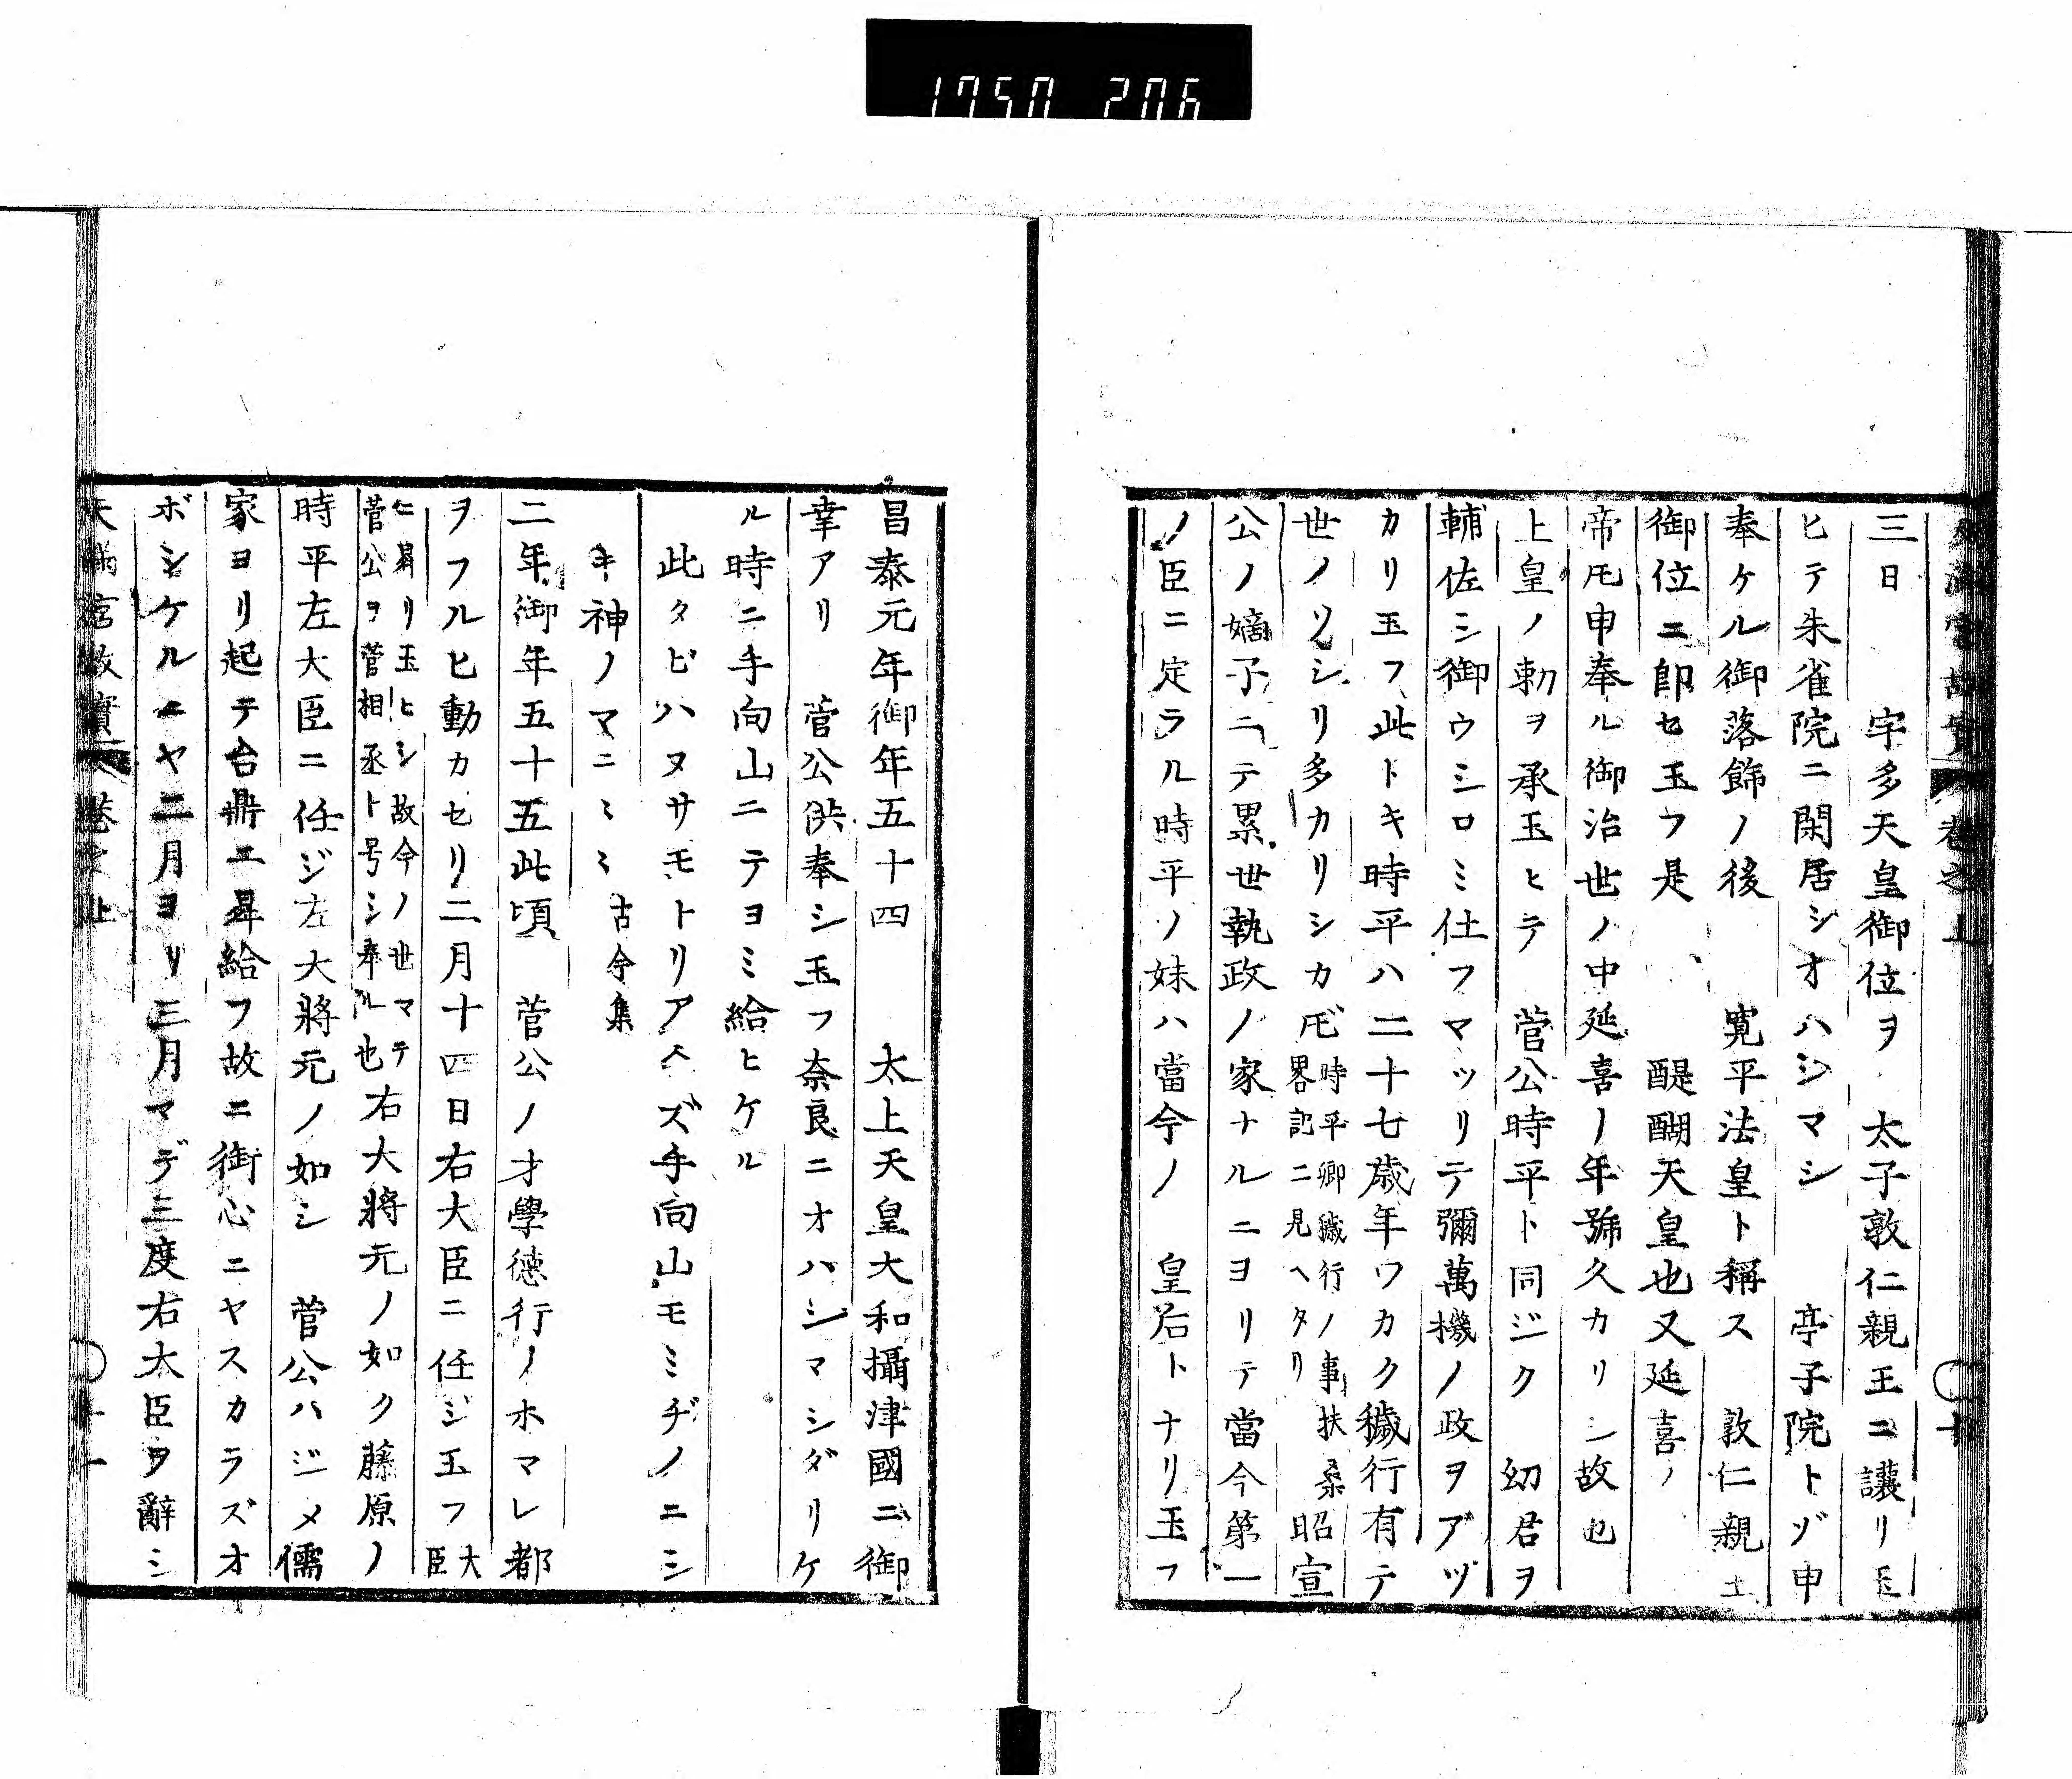 1750 206
三日　宇多天皇御位ヲ　太子敦仁親王ニ讓リ玉
ヒテ朱雀院ニ閑居シオハシマシ　亭子院トゾ申
奉ケル御落飾ノ後　寛平法皇ト稱ス　敦仁親王
御位ニ即セ玉フ是　醍醐天皇也又延喜ノ
帝𪜈申奉ル御治世ノ中延喜ノ年號久カリシ故也
上皇ノ勅ヲ承玉ヒテ　菅公時平ト同ジク　幼君ヲ
輔佐シ御ウシロミ仕フマツリテ彌萬機ノ政ヲアヅ
カリ玉フ此トキ時平ハ二十七歳年ワカク穢行有テ
世ノソシリ多カリシカ𪜈時平卿穢行ノ事扶桑
畧記ニ見ヘタリ昭宣
公ノ嫡子ニテ累世執政ノ家ナルニヨリテ當今第一
ノ臣ニ定ラル時平ノ妹ハ當今ノ　皇后トナリ玉フ
昌泰元年御年五十四　太上天皇大和攝津國ニ御
幸アリ　菅公供奉シ玉フ奈良ニオハシマシダリケ
ル時ニ手向山ニテヨミ給ヒケル
此タビハヌサモトリアヘズ手向山モミヂノニシ
キ神ノマニヽヽ　古今集
二年御年五十五此頃　菅公ノ才學德行ノホマレ都
ヲフルヒ動カセリ二月十四日右大臣ニ任ジ玉フ大
臣
ニ昇リ玉ヒシ故今ノ世マテ
菅公ヲ菅相丞ト号シ奉ル也右大將元ノ如ク藤原ノ
時平左大臣ニ任ジ左大將元ノ如シ　菅公ハジメ儒
家ヨリ起テ台鼎ニ昇給フ故ニ御心ニヤスカラズオ
ボシケルニヤ二月ヨリ三月マデ三度右大臣ヲ辭シ
天滿宮故實　卷之上